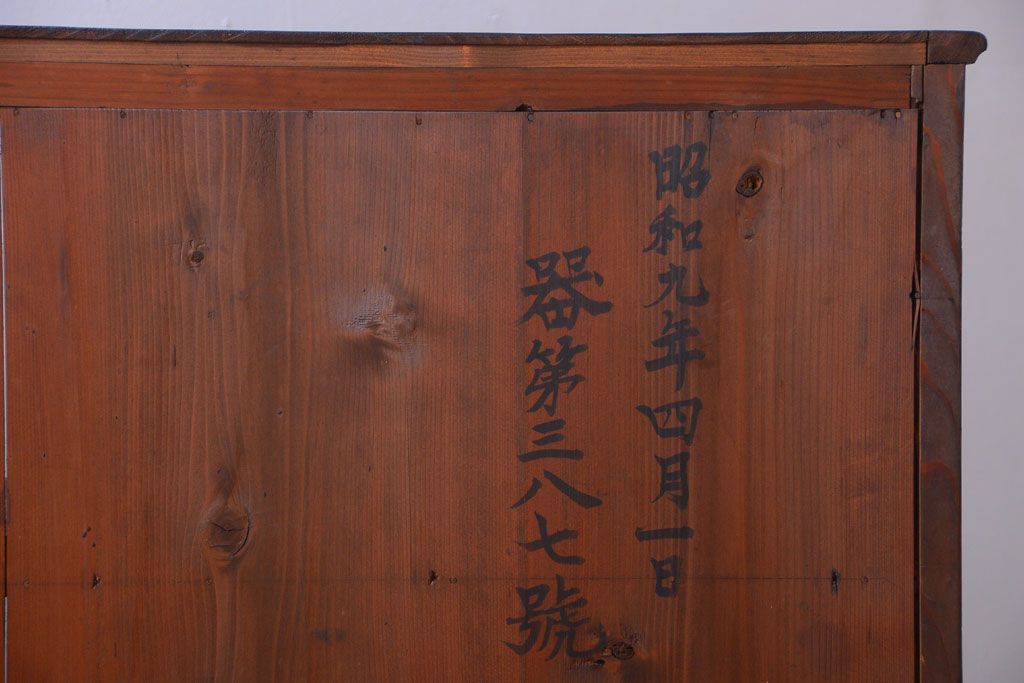 昭和九年四月一日
器第三八七號